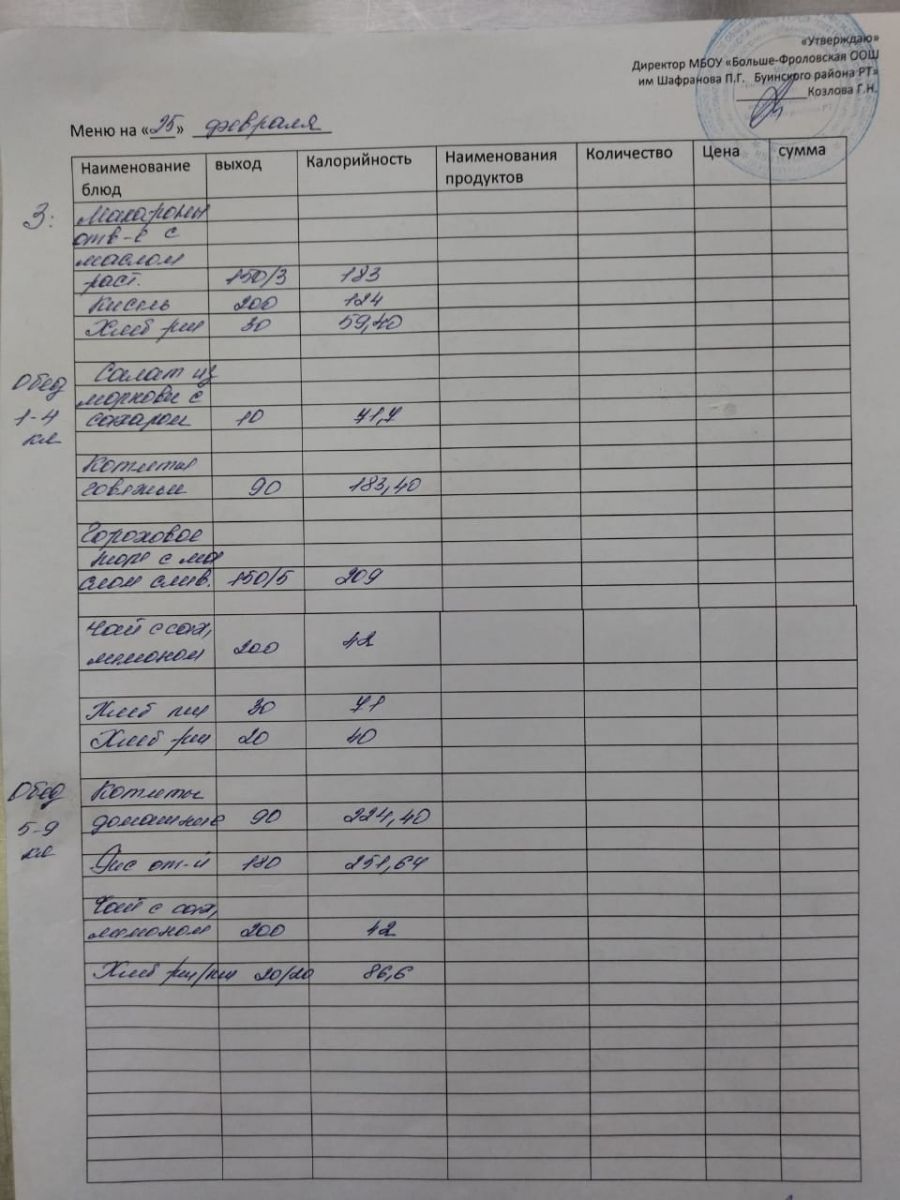 «Утверждаю»
Директор МБОУ «Больше-Фроловская ООШ
им Шафранова П.Г. Буинского района РТ»
Козлова Г.Н.
Меню на «25» февраля
Наименование блюд выход Калорийность Наименования продуктов Количество Цена сумма
З:
Макароны
отв-е с
маслом
раст. 150/3 183
Кисель 200 124
Хлеб рж 30 59,40
Обед
1-4
кл
Салат из
моркови с
сахаром 10 71,7
Котлеты
говяжьи 90 183,40
Гороховое
пюре с ма
слом слив. 150/5 209
Чай с сах,
лимоном 200 42
Хлеб пш 30 71
Хлеб рж 20 40
Обед
5-9
кл
Котлеты
домашние 90 224,40
Рис от-й 180 251,64
Чай с сах,
лимоном 200 42
Хлеб рж/пш 20/20 86,6